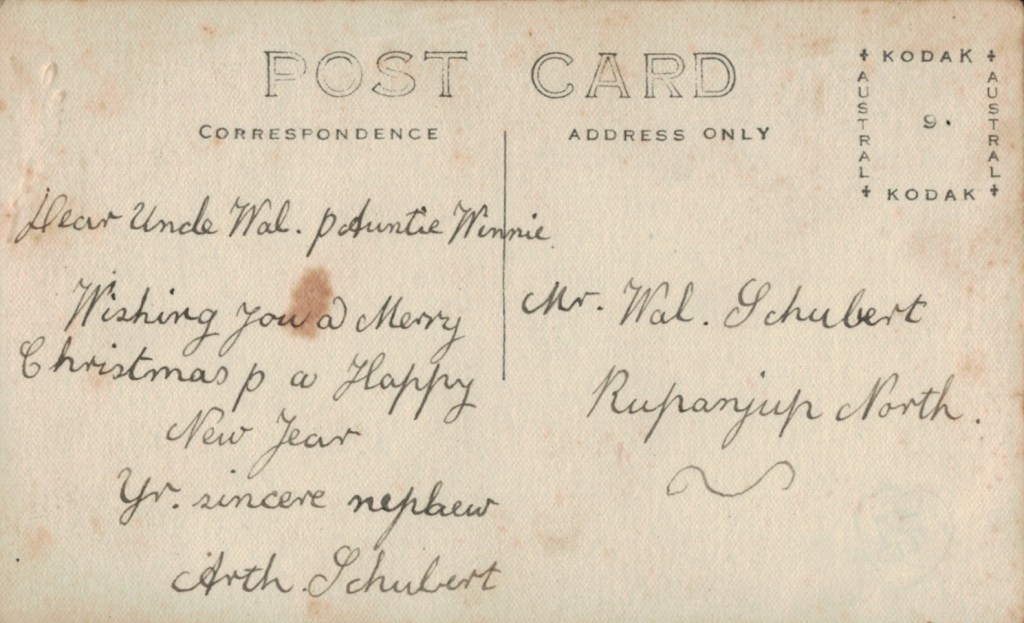 POST CARD
CORRESPONDENCE
ADDRESS ONLY
KODAK
AUSTRAL
9.
AUSTRAL
KODAK
Dear Uncle Wal. & Auntie Winnie
Wishing you a Merry
Christmas & a Happy
New Year
Yr. sincere nephew
Arth. Schubert
Mr. Wal. Schubert
Rupanjup North.